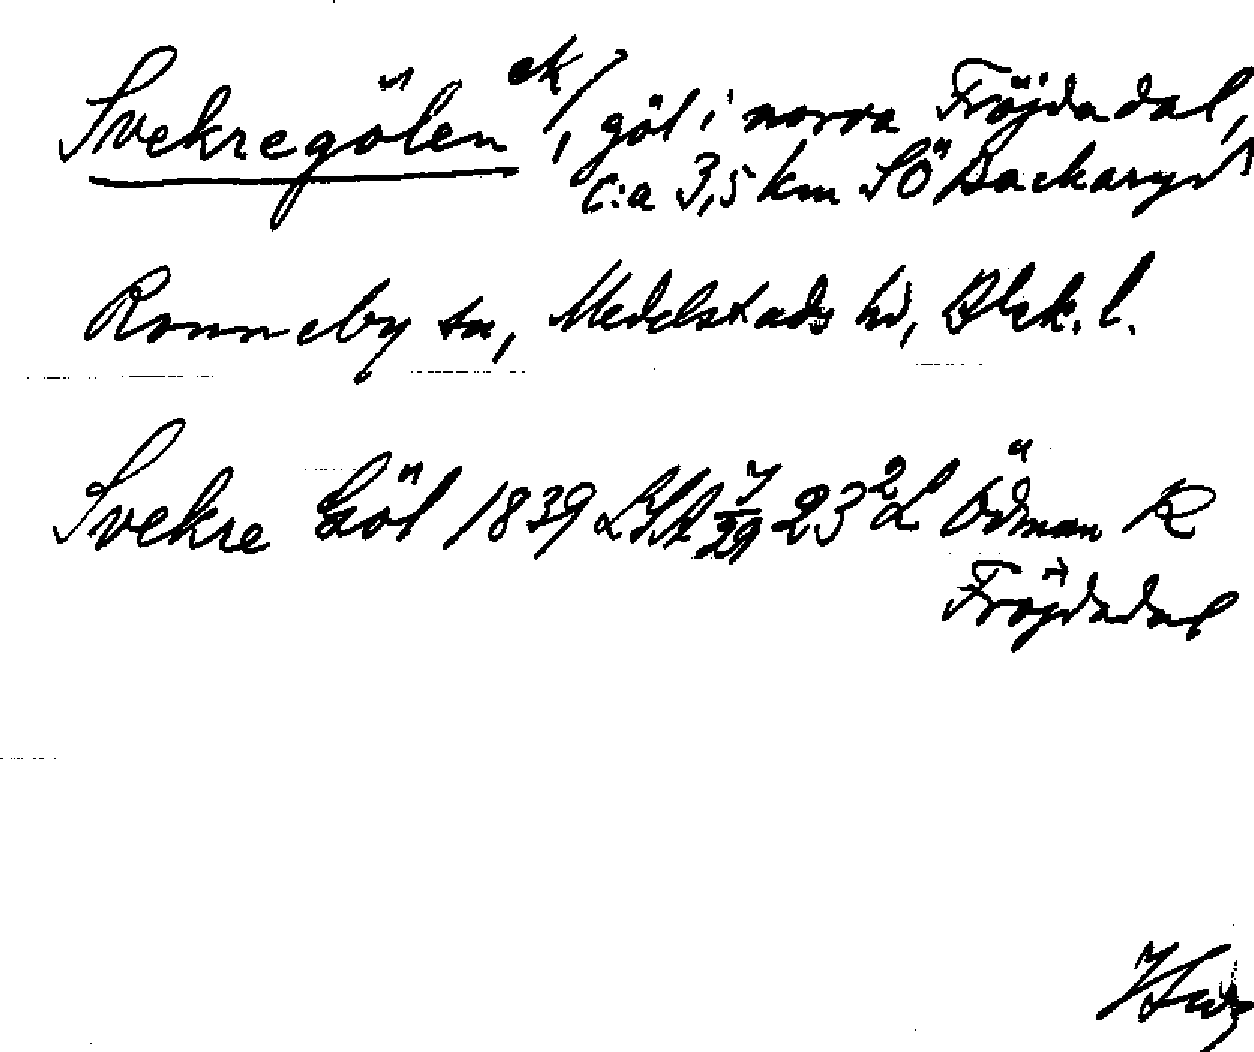 Svekregölen ek/, göl i norra Fröjdadal,
c:a 3,5 km SÖ Backaryd
Ronneby sn, Medelstads hd, Blek. l.
Svekre Göl 1839 LSA 7/29 23² L Ödman R
Fröjdadal